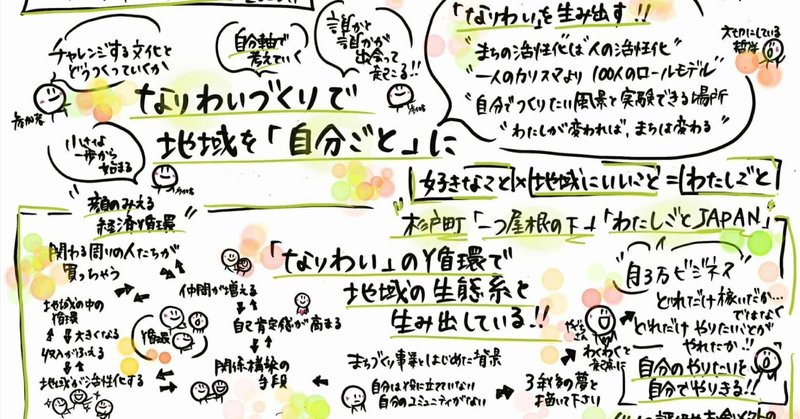 チャレンジする文化を
どうつくっていくか
参加者
自分軸で
考えていく
誰かと
誰かが
出会って
起こる!!
小さな
一歩から
始まる
なりわいづくりで
地域を「自分ごと」に
「なりわい」を生み出す!!
"まちの活性化"は"人の活性化"
"一人のカリスマより 100人のロールモデル"
"自分でつくりたい風景を実験できる場所"
"わたしが変われば、まちは変わる"
大切にしている
哲学
好きなこと×地域にいいこと=わたしごと
杉戸町「一つ屋根の下」→「わたしごとJAPAN」
顔のみえる
経済循環
関わる周りの人たちが
買っちゃう
地域の中の
循環
大きくなる
収入がふえる
地域が活性化する
循環
仲間が増える
自己肯定感が高まる
関係構築の
手段
「なりわい」の循環で
地域の生態系を
生み出している!!
まちづくり事業をはじめた背景
自分は役に立てていない
自分のコミュニティがない
3年後の夢を
描いて下さい
わくわくを
"月3万ビジネス"
どれだけ稼いだか…
ではなく
どれだけやりたいことが
やれたか!!
自分のやりたいを
自分でやりきる!!